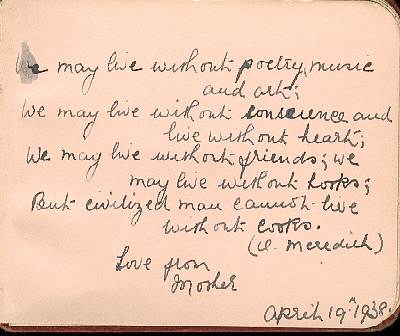 We may live without poetry, music
and art;
We may live without conscience and
live without heart;
We may live without friends; we
may live without books;
But civilized man cannot live
without cooks.
(O. Meredith)
Love from
Mother
April 19th 1938.